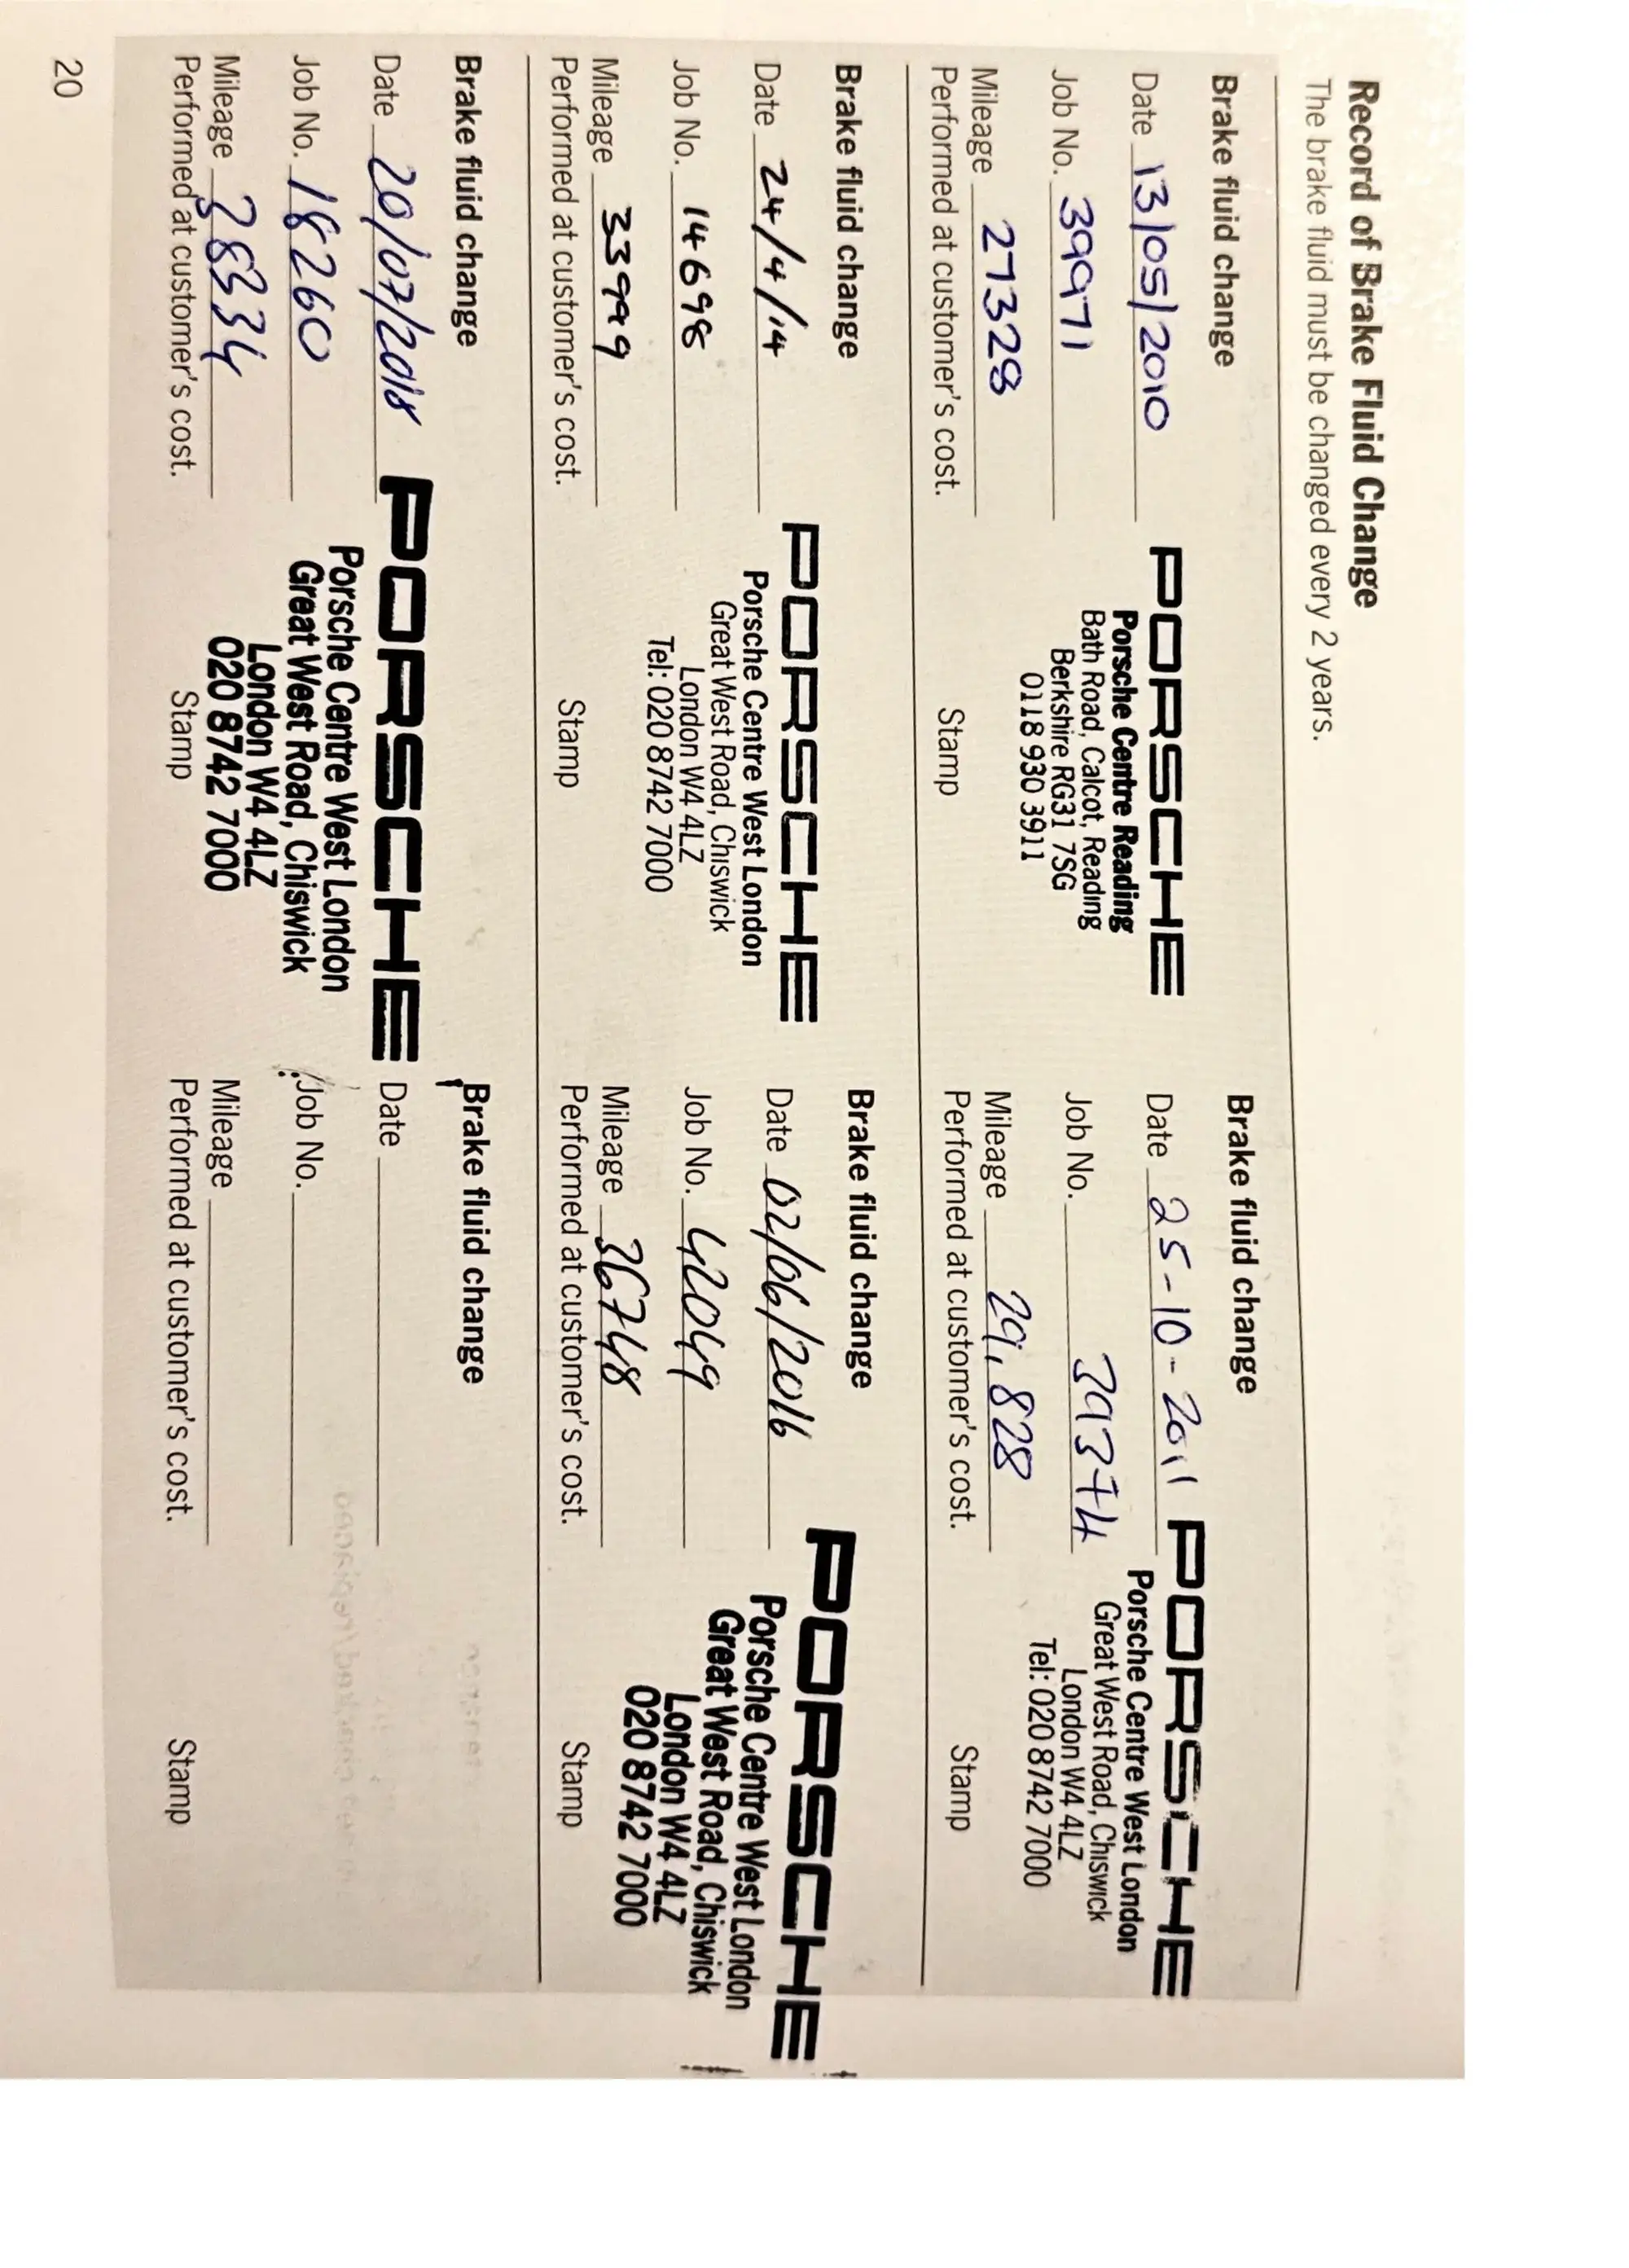 Record of Brake Fluid Change
The brake fluid must be changed every 2 years.
Brake fluid change
Date 13/05/2010
Job No. 39971
Mileage 27328
Performed at customer's cost.
PORSCHE
Porsche Centre Reading
Bath Road, Calcot, Reading
Berkshire RG31 7SG
0118 930 3911
Stamp
Brake fluid change
Date 25-10-2011
Job No. 39374
Mileage 29,828
Performed at customer's cost.
PORSCHE
Porsche Centre West London
Great West Road, Chiswick
London W4 4LZ
Tel: 020 8742 7000
Stamp
Brake fluid change
Date 24/4/14
Job No. 14698
Mileage 33999
Performed at customer's cost.
PORSCHE
Porsche Centre West London
Great West Road, Chiswick
London W4 4LZ
Tel: 020 8742 7000
Stamp
Brake fluid change
Date 02/06/2016
Job No. 42049
Mileage 36748
Performed at customer's cost.
PORSCHE
Porsche Centre West London
Great West Road, Chiswick
London W4 4LZ
020 8742 7000
Stamp
Brake fluid change
Date 20/07/2018
Job No. 18260
Mileage
Performed at customer's cost.
PORSCHE
Porsche Centre West London
Great West Road, Chiswick
London W4 4LZ
020 8742 7000
Stamp
Brake fluid change
Date
Job No.
Mileage
Performed at customer's cost.
Stamp
20